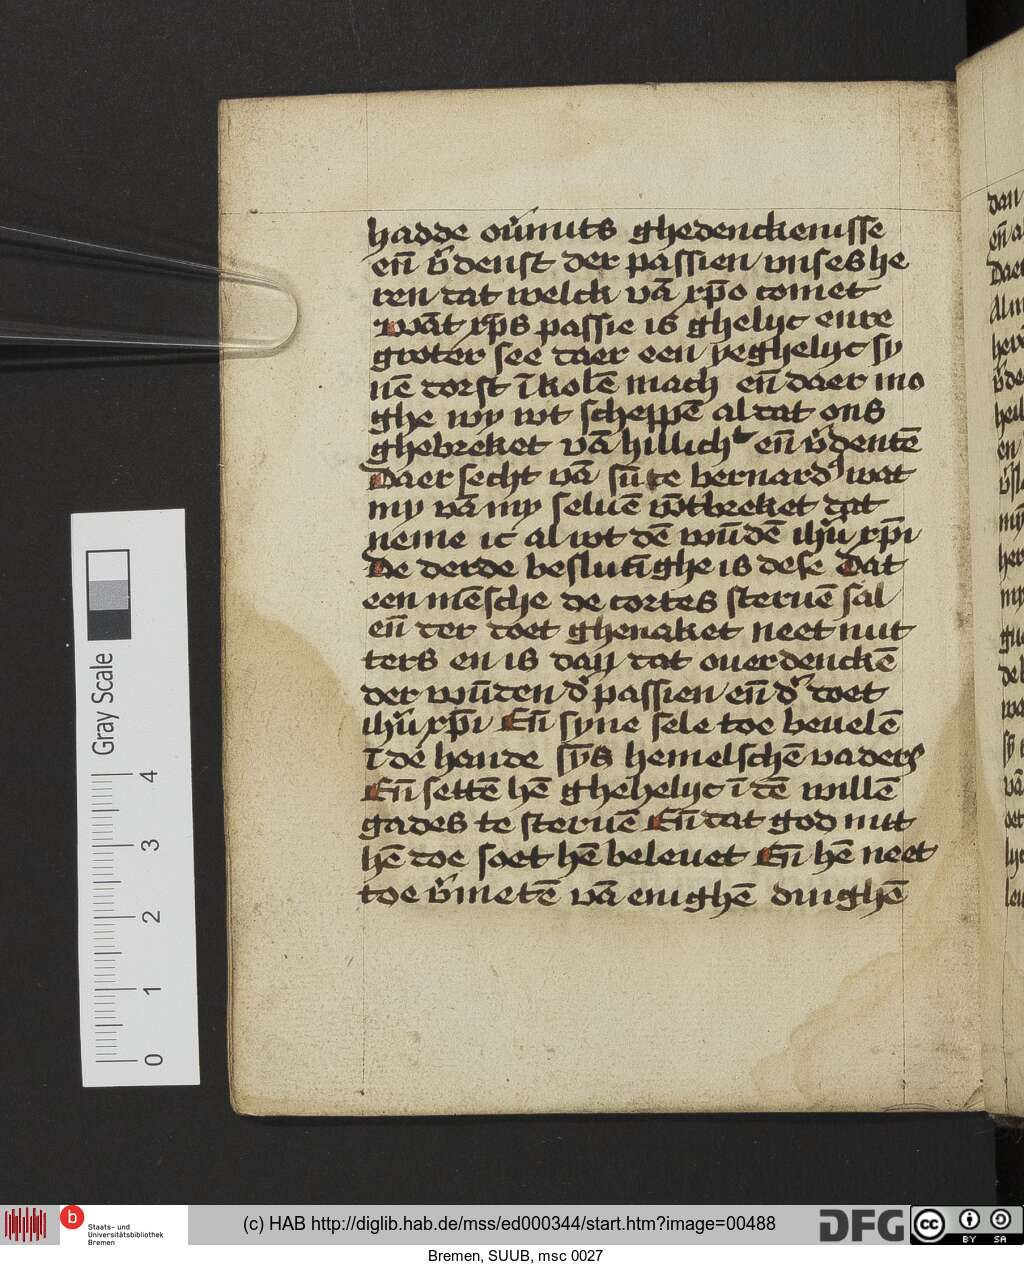 hadde ou᷑mits ghedenckenisse
en̄ v᷑denst der passien vnses he
ren dat welck vā xp̄o comet
Wāt xp̄s passie is ghelijc enre
groter see daer een yeghelijc sy
nē dorst ī kolē mach en̄ daer mo
ghe wy wt scheppē al dat ons
ghebreket vā hillich en̄ v᷑dentē
Daer secht vā sūte bernardꝰ wat
my vā my seluē ōtbreket dat
neme ic al wt dē wūdē ihū xp̄i
De derde beslutīghe is dese Dat
een mēsche de cortes steruē sal
en̄ ter doet ghenaket neet nut
ters en is dan dat ouerdenckē
der wūden d᷑ passien en̄ d᷑ doet
ihū xp̄i En̄ syne sele toe beuelē
ī de hande sȳs hemelschē vaders
En̄ settē hē ghehelijc ī dē willē
gades te steruē En̄ dat god mit
hē doe soet hē beleuet En̄ hē neet
toe v᷑metē vā enighē dinghē
dan
Daer
Gray Scale
4
3
2
1
0
b
Staats- und
Universitätsbibliothek
Bremen
(c) HAB http://diglib.hab.de/mss/ed000344/start.htm?image=00488
DFG
cc BY SA
Bremen, SUUB, msc 0027